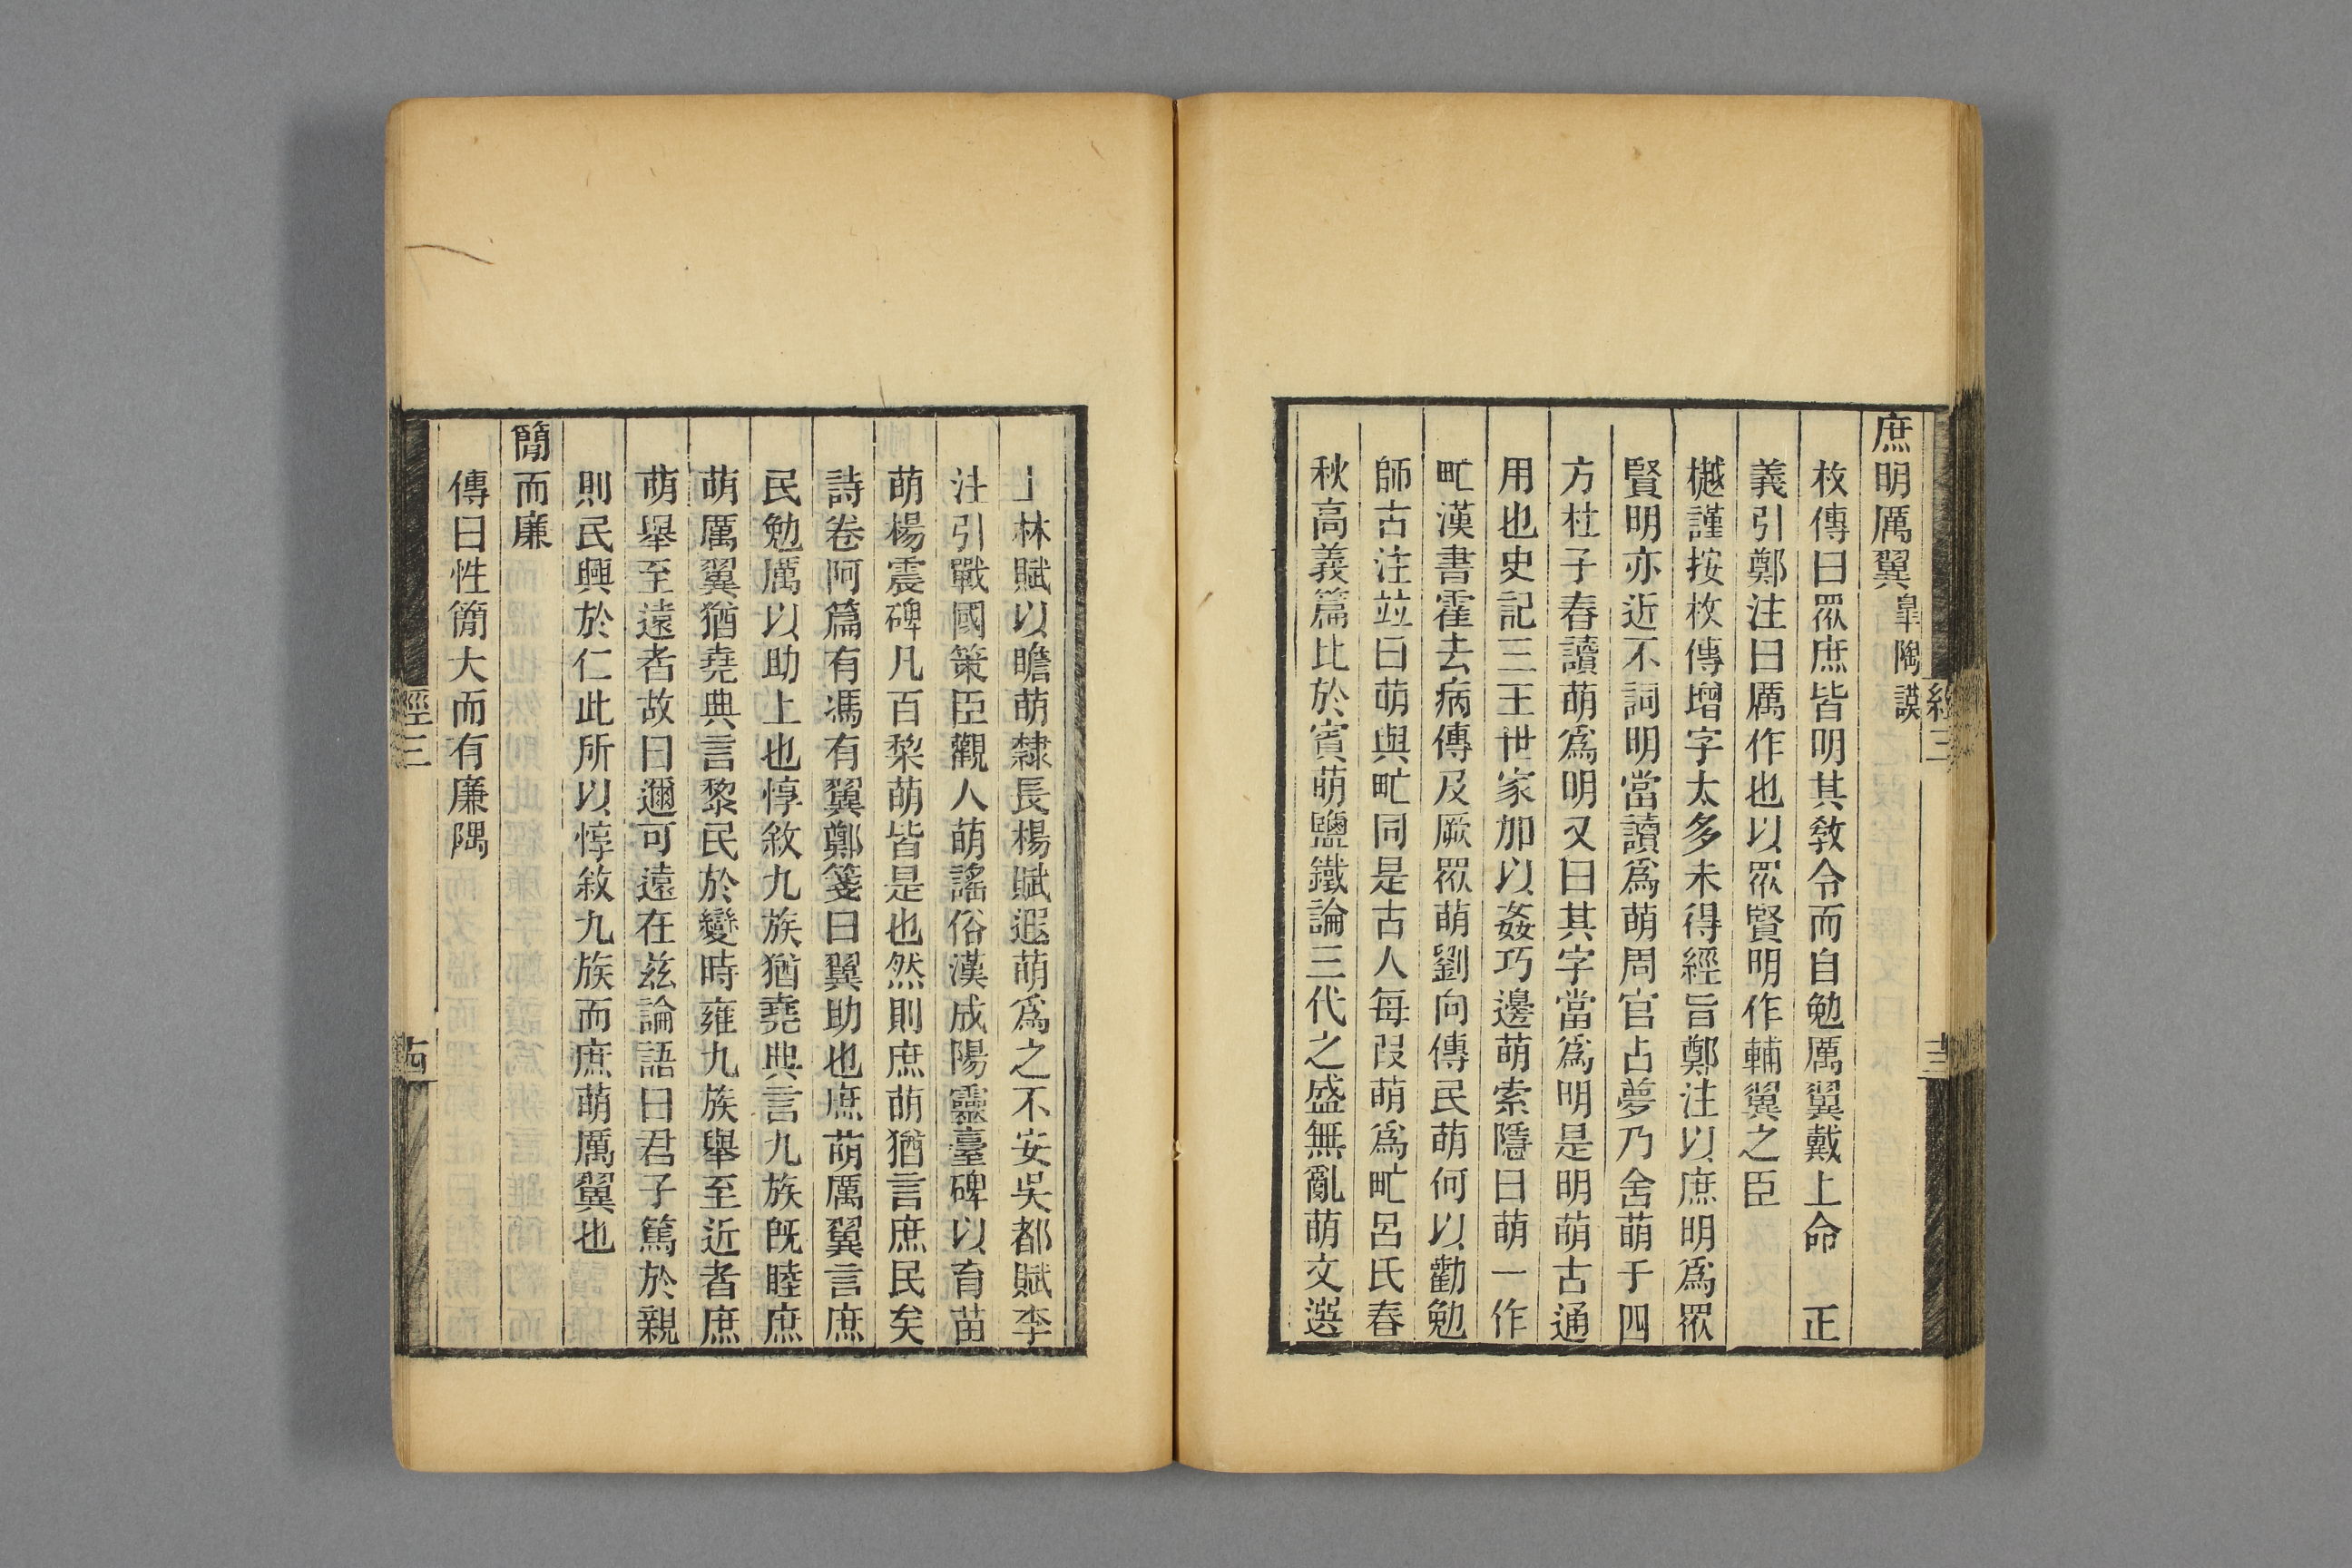 庶明厲翼皐陶謨
枚傳曰眾庶皆明其敎令而自勉厲翼戴上命　正
義引鄭注曰厲作也以眾賢明作輔翼之臣
樾謹按枚傳增字太多未得經旨鄭注以庶明爲眾
賢明亦近不詞明當讀爲萌周官占夢乃舍萌于四
方杜子春讀萌爲明又曰其字當爲明是明萌古通
用也史記三王世家加以姦巧邊萌索隱曰萌一作
甿漢書霍去病傳及厥眾萌劉向傳民萌何以勸勉
師古注竝曰萌與甿同是古人每叚萌爲甿呂氏春
秋高義篇比於賓萌鹽鐵論三代之盛無亂萌文選
經三
十三
上林賦以瞻萌隸長楊賦遐萌爲之不安吳都賦李
注引戰國策臣觀人萌謠俗漢成陽靈臺碑以育苗
萌楊震碑凡百棃萌皆是也然則庶萌猶言庶民矣
詩卷阿篇有馮有翼鄭箋曰翼助也庶萌厲翼言庶
民勉厲以助上也惇敘九族猶堯典言九族旣睦庶
萌厲翼猶堯典言黎民於變時雍九族舉至近者庶
萌舉至遠者故曰邇可遠在茲論語曰君子篤於親
則民興於仁此所以惇敘九族而庶萌厲翼也
簡而廉
傳曰性簡大而有廉隅
經三
十四